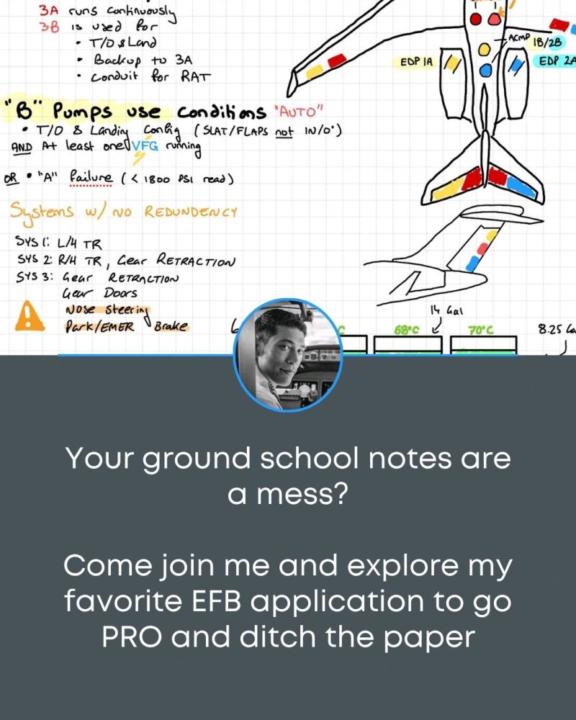 3A runs continuously
3B is used for
• T/O & Land
• Backup to 3A
• Conduit for RAT
ACMP 1B/2B
EDP 1A
EDP 2A
"B" Pumps use conditions "AUTO"
• T/O & Landing Config (SLAT/FLAPS not IN/0°)
AND At least one VFG running
OR • "A" Failure (< 1800 PSI read)
Systems w/ NO REDUNDENCY
SYS 1: L/H TR
SYS 2: R/H TR, Gear RETRACTION
SYS 3: Gear RETRACTION
Gear Doors
Nose Steering
Park/EMER Brake
14 Gal
68°C
70°C
8.25 Ga
Your ground school notes are
a mess?
Come join me and explore my
favorite EFB application to go
PRO and ditch the paper